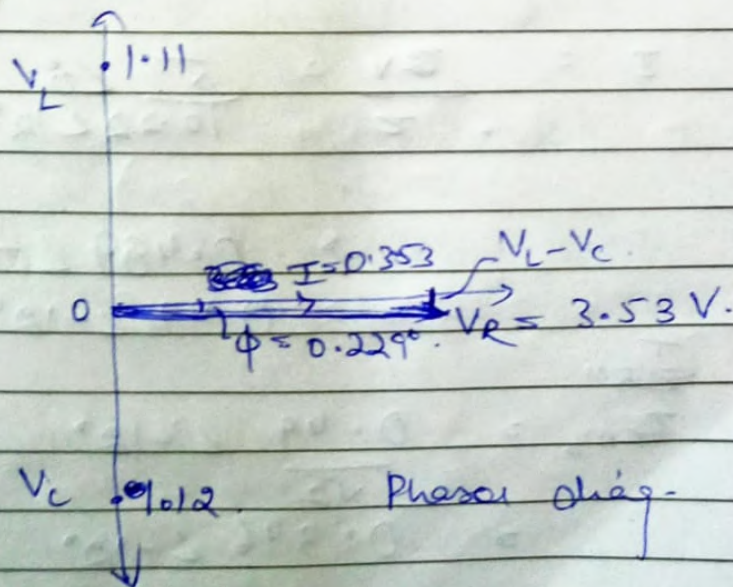 V_L 1.11
I = 0.353 V_L - V_C
0 V_R = 3.53 V.
ϕ = 0.229°.
V_C 1.012 Phasor diag.